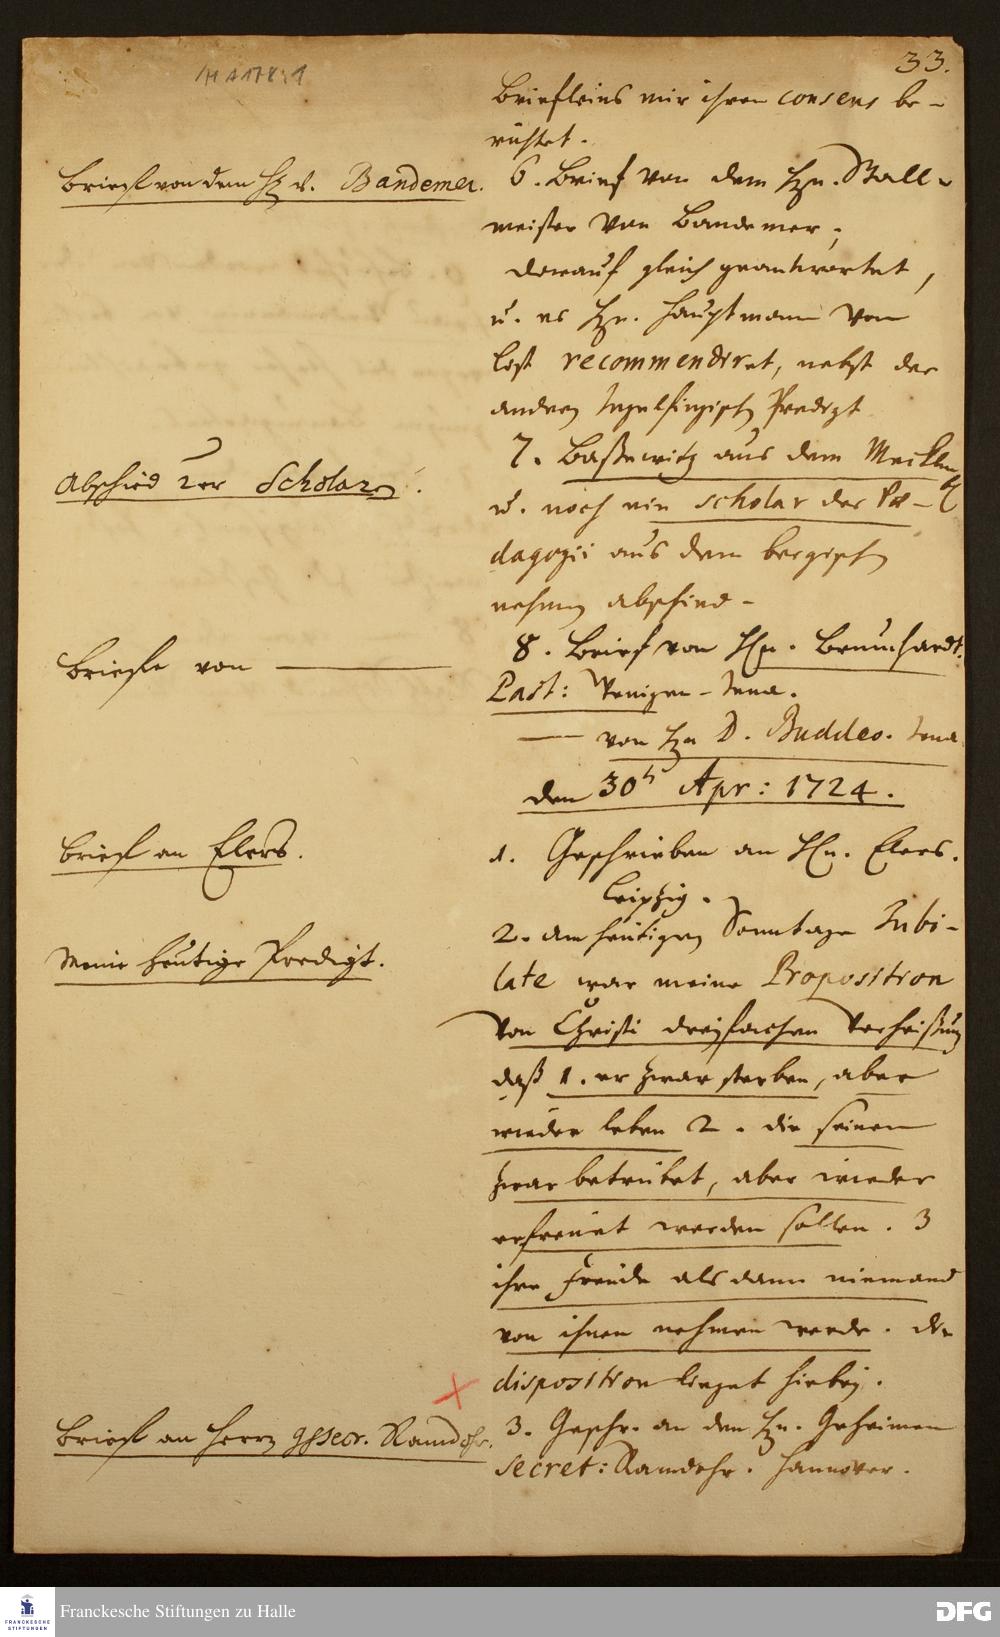 33.
H A 178:1
Briefleins mir ihren consens be-
richtet.
Brieff von dem H. v. Bandemer.
6. Brief von dem Hn. Stall-
meister von Bandemer;
darauf gleich geantwortet,
u. es Hn. Hauptmann von
lost recommendiret, nebst der
andern Predigt
Abschied 2er Scholaren.
7. Baßewitz aus dem Meckl.
u. noch ein scholar des Pæ-
dagogii aus dem bergischen
nehmen abschied-
Brieffe von ———
8. Brief von Hn. Brumhardt.
Past: Wenigen-Jena.
—— von Hn D. Buddeo. Jena
den 30t Apr: 1724.
Brieff an Elers.
1. Geschrieben an Hn. Elers.
Leipzig.
Meine heutige Predigt.
2. am heutigen Sonntage Jubi-
late war meine Proposition
Von Christi dreyfachen Verheißung
daß 1. er zwar sterben, aber
wieder leben 2. die seinen
zwar betrübet, aber wieder
erfreuet werden sollen. 3
ihre Freude als dann niemand
von ihnen nehmen werde. Die
disposition lieget hiebey.
Brieff an Herrn ghsecr. Ramdohr.
3. Geschr. an den Hn. Geheimen
Secret: Ramdohr. Hannover.
FRANCKESCHE
STIFTUNGEN
Franckesche Stiftungen zu Halle
DFG